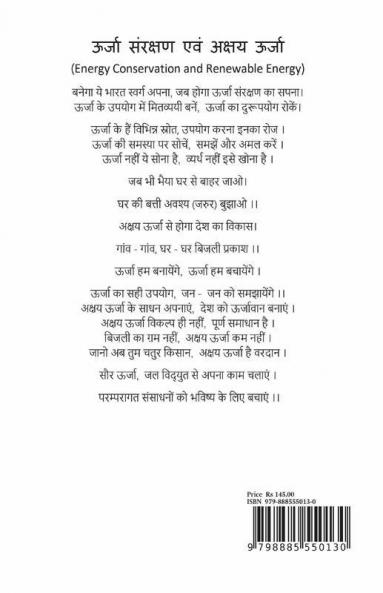 ऊर्जा संरक्षण एवं अक्षय ऊर्जा
(Energy Conservation and Renewable Energy)
बनेगा ये भारत स्वर्ग अपना, जब होगा ऊर्जा संरक्षण का सपना।
ऊर्जा के उपयोग में मितव्ययी बनें, ऊर्जा का दुरूपयोग रोकें।
ऊर्जा के हैं विभिन्न स्रोत, उपयोग करना इनका रोज ।
ऊर्जा की समस्या पर सोचें, समझें और अमल करें ।
ऊर्जा नहीं ये सोना है, व्यर्थ नहीं इसे खोना है ।
जब भी भैया घर से बाहर जाओ।
घर की बत्ती अवश्य (जरुर) बुझाओ ।।
अक्षय ऊर्जा से होगा देश का विकास।
गांव - गांव, घर - घर बिजली प्रकाश ।।
ऊर्जा हम बनायेंगे, ऊर्जा हम बचायेंगे ।
ऊर्जा का सही उपयोग, जन - जन को समझायेंगे ।।
अक्षय ऊर्जा के साधन अपनाएं, देश को ऊर्जावान बनाएं ।
अक्षय ऊर्जा विकल्प ही नहीं, पूर्ण समाधान है ।
बिजली का ग़म नहीं, अक्षय ऊर्जा कम नहीं ।
जानो अब तुम चतुर किसान, अक्षय ऊर्जा है वरदान ।
सौर ऊर्जा, जल विद्युत से अपना काम चलाएं ।
परम्परागत संसाधनों को भविष्य के लिए बचाएं ।।
Price Rs 145.00
ISBN 979-888555013-0
9 798885 550130